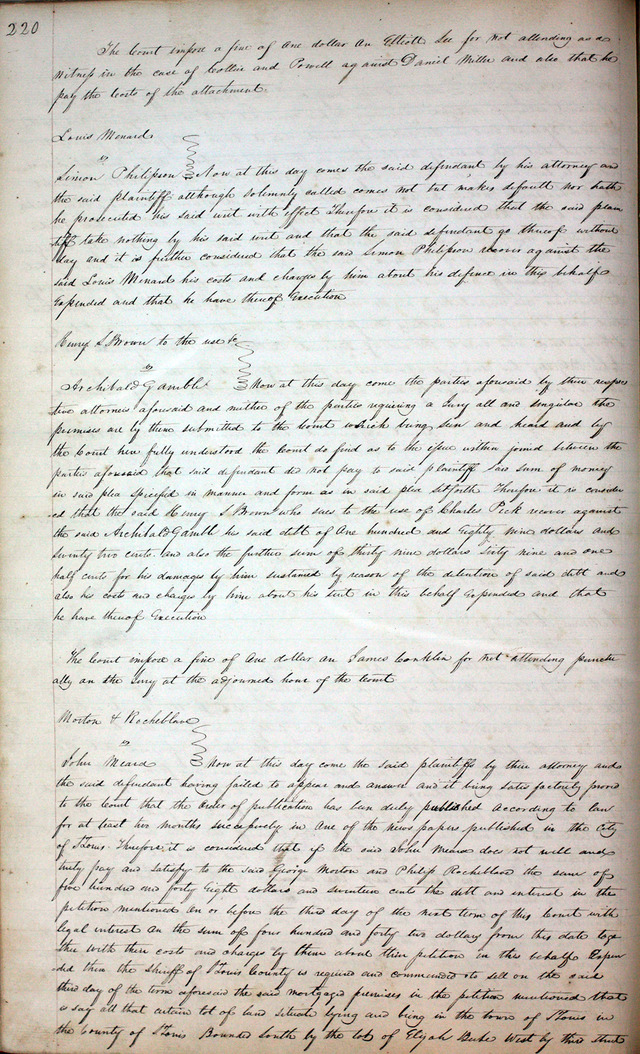 220
The Court impose a fine of One dollar on Elliott Lee for not attending as a
witness in the case of Collier and Powell against Daniel Miller and also that he
pay the Costs of the attachment
Louis Menard
vs
Simon Philipson Now at this day comes the said defendant by his attorney and
the said plaintiff although solemnly called comes not but makes default nor hath
he prosecuted his said writ with effect Therefore it is considered that the said plain
tiff take nothing by his said writ and that the said defendant go thereof without
day and it is further considered that the said Simon Philipson recover against the
said Louis Menard his costs and charges by him about his defence in this behalf
Expended and that he have thereof Execution
Henry S. Brown to the use &c
vs
Archibald Gamble Now at this day come the parties aforesaid by their respec
tive attornies aforesaid and neither of the parties requiring a Jury all and singular the
premises are by them submitted to the Court which being seen and heard and by
the Court here fully understood the Court do find as to the issue within joined between the
parties aforesaid that said defendant did not pay to said plaintiff said sum of money
in said plea specified in manner and form as in said plea setforth Therefore it is consider
ed that the said Henry S Brown who sues to the use of Charles Peck recover against
the said Archibald Gamble his said debt of One hundred and Eighty Nine dollars and
seventy two cents and also the further sum of thirty nine dollars Sixty Nine and one
half cents for his damages by him sustained by reason of the detention of said debt and
also his costs and charges by him about his suit in this behalf Expended and that
he have thereof Execution
The Court impose a fine of One dollar on James Conklin for not attending punctu
ally on the Jury at the adjourned hour of the Court
Morton & Rocheblave
vs
John Meard Now at this day come the said plaintiffs by their attorney and
the said defendant having failed to appear and answer and it being satisfactorily proved
to the Court that the Order of publication has been duly published according to law
for at least two months successively in One of the news papers published in the City
of St Louis Therefore it is considered that if the said John Meard does not well and
truly pay and satisfy to the said George Morton and Philip Rocheblave the sum of
five hundred and forty Eight dollars and seventeen cents the debt and interest in the
petition mentioned on or before the third day of the next term of this Court with
legal interest on the sum of four hundred and forty two dollars from this date toge
ther with their costs and charges by them about their petition in this behalf Expen
ded then the sheriff of St Louis County is required and commanded to sell on the said
third day of the term aforesaid the said mortgaged premises in the petition mentioned that
is say all that certain lot of land situate lying and being in the town of St Louis in
the County of St Louis Bounded South by the lot of Elijah West by third street